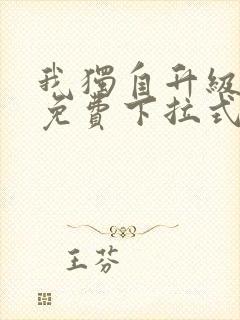 我獨自升級
免費下拉式
王芬